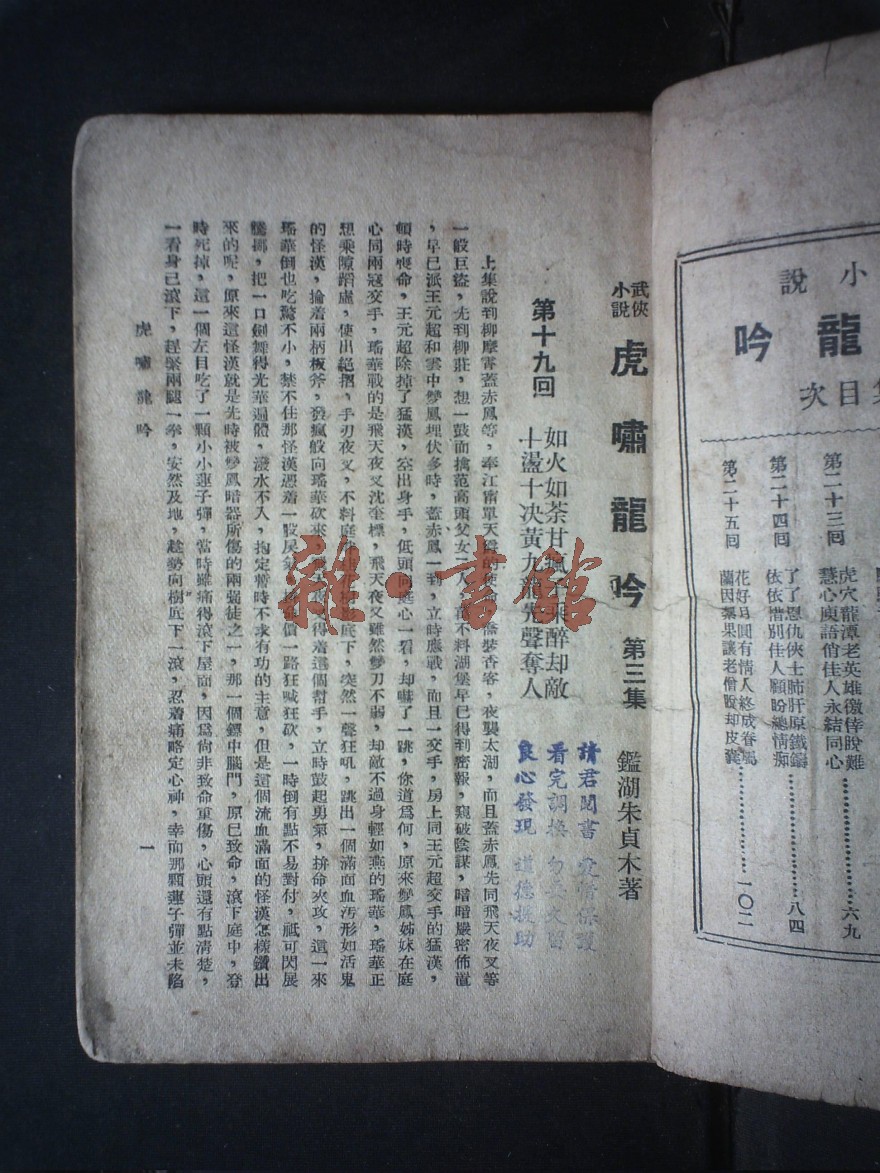 小說
龍吟
集目次
第二十三回
虎穴龍潭老英雄徼倖脫難
慧心庾語俏佳人永結同心
六九
第二十四回
了了恩仇俠士肺肝原鐵鑄
依依惜別佳人顧盼總情痴
八四
第二十五回
花好月圓有情人終成眷屬
蘭因絮果讓老僧脫却皮囊
一〇二
武俠小說 虎嘯龍吟 第三集 鑑湖朱貞木著
第十九回
如火如荼甘瘋子乘醉却敵
十盪十决黃九龍先聲奪人
請君閱書 愛惜保護
看完調換 勿長久留
良心發現 道德援助
上集說到柳摩霄蓋赤鳳等,奉江甯單天爵的使命,喬裝香客,夜襲太湖,而且蓋赤鳳先同飛天夜叉等
一般巨盜,先到柳莊,想一鼓而擒范高頭父女二人,萬不料湖堡早已得到密報,窺破陰謀,暗暗嚴密佈置
,早已派王元超和雲中雙鳳埋伏多時,蓋赤鳳一到,立時應戰,而且一交手,房上同王元超交手的猛漢,
頓時喪命,王元超除掉了猛漢,空出身手,低頭向庭心一看,却嚇了一跳,你道爲何,原來雙鳳姊妹在庭
心同兩寇交手,瑤華戰的是飛天夜叉沈奎標,飛天夜叉雖然雙刀不弱,却敵不過身輕如燕的瑤華,瑤華正
想乘隙蹈虛,使出絕招,手刃夜叉,不料庭 底下,突然一聲狂吼,跳出一個滿面血汚形如活鬼
的怪漢,掄着兩柄板斧,發瘋般向瑤華砍來, 得着這個幫手,立時鼓起勇氣,拚命夾攻,這一來
瑤華倒也吃驚不小,禁不住那怪漢憑着一股戾氣, 一路狂喊狂砍,一時倒有點不易對付,祇可閃展
騰挪,把一口劍舞得光華遍體,潑水不入,抱定暫時不求有功的主意,但是這個流血滿面的怪漢怎樣鑽出
來的呢,原來這怪漢就是先時被雙鳳暗器所傷的兩個強徒之一,那一個鏢中腦門,原已致命,滾下庭中,登
時死掉,這一個左目吃了一顆小小蓮子彈,當時雖痛得滾下屋面,因爲尙非致命重傷,心頭還有點清楚,
一看身已滾下,趕緊兩腿一拳,安然及地,趁勢向樹底下一滾,忍着痛略定心神,幸而那顆蓮子彈並未陷
虎嘯龍吟
一
雜·書館